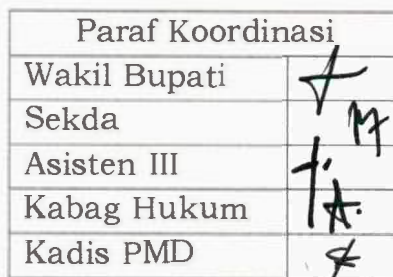 Paraf Koordinasi
Wakil Bupati
Sekda
Asisten III
Kabag Hukum
Kadis PMD